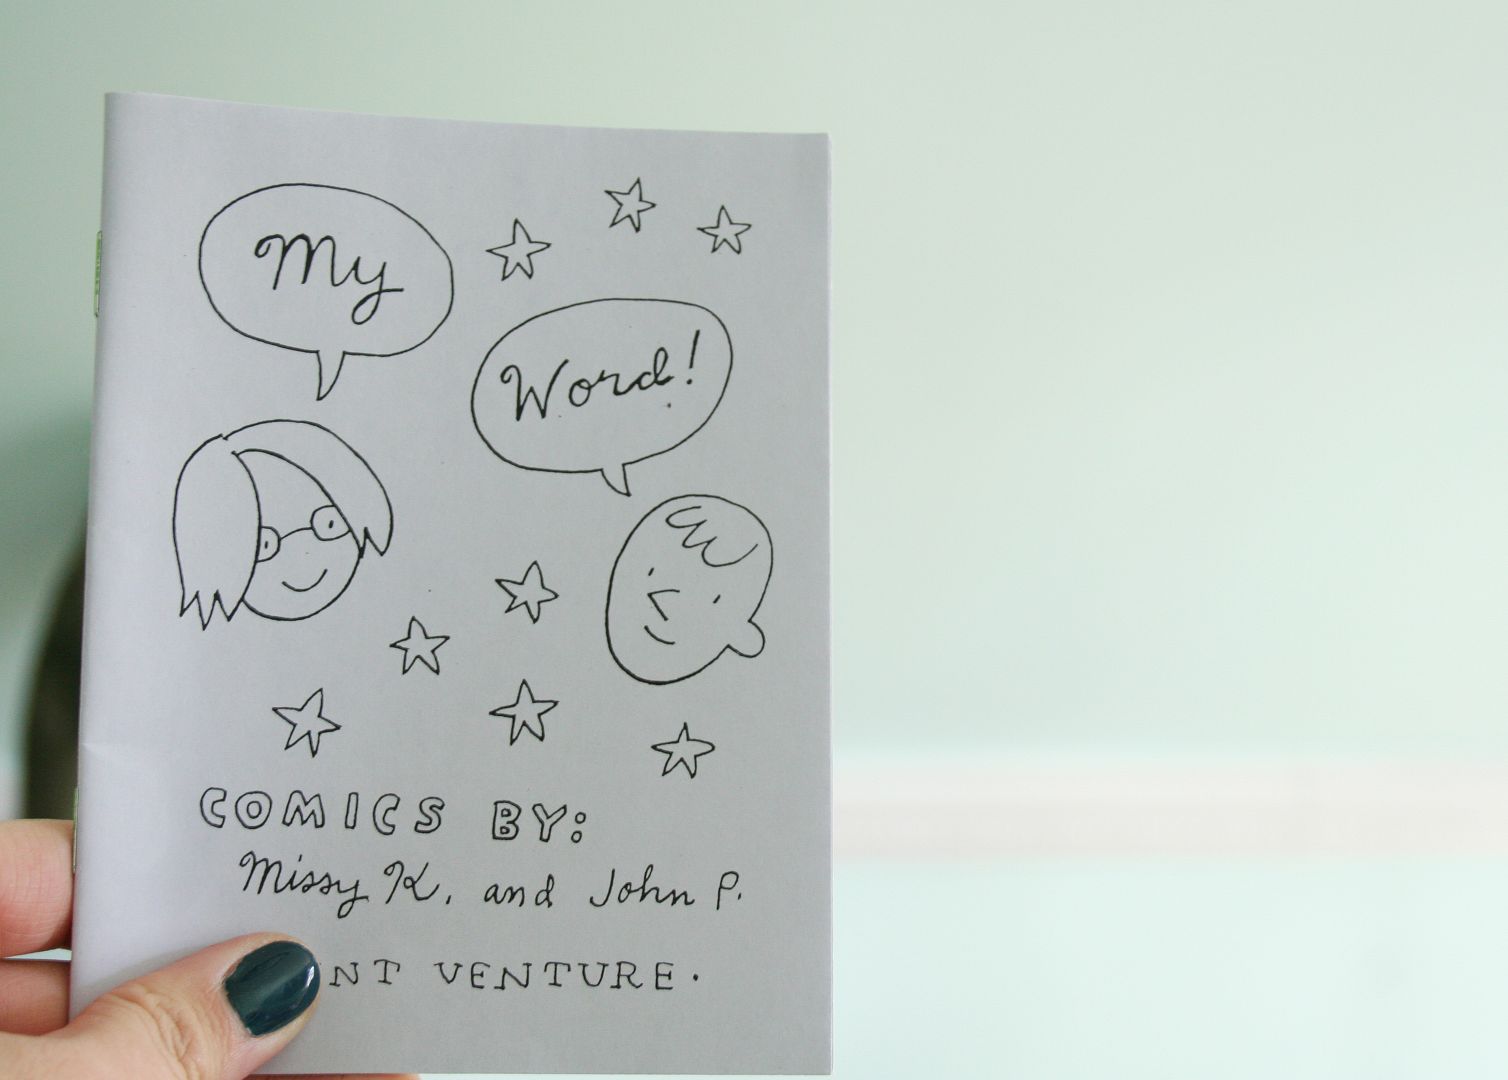 My
Word!
COMICS BY:
Missy K. and John P.
VENTURE.